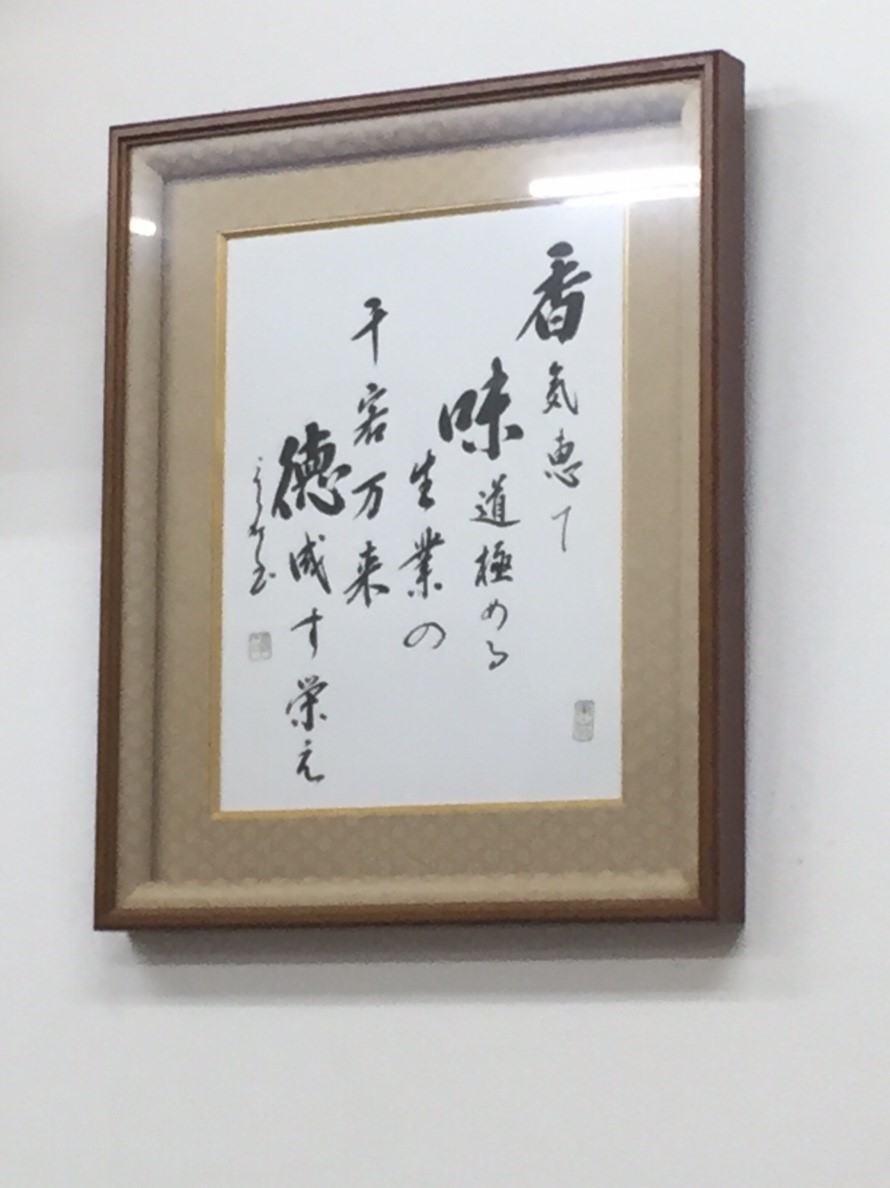 香気恵て
味道極める
生業の
千客万来
徳成す栄え